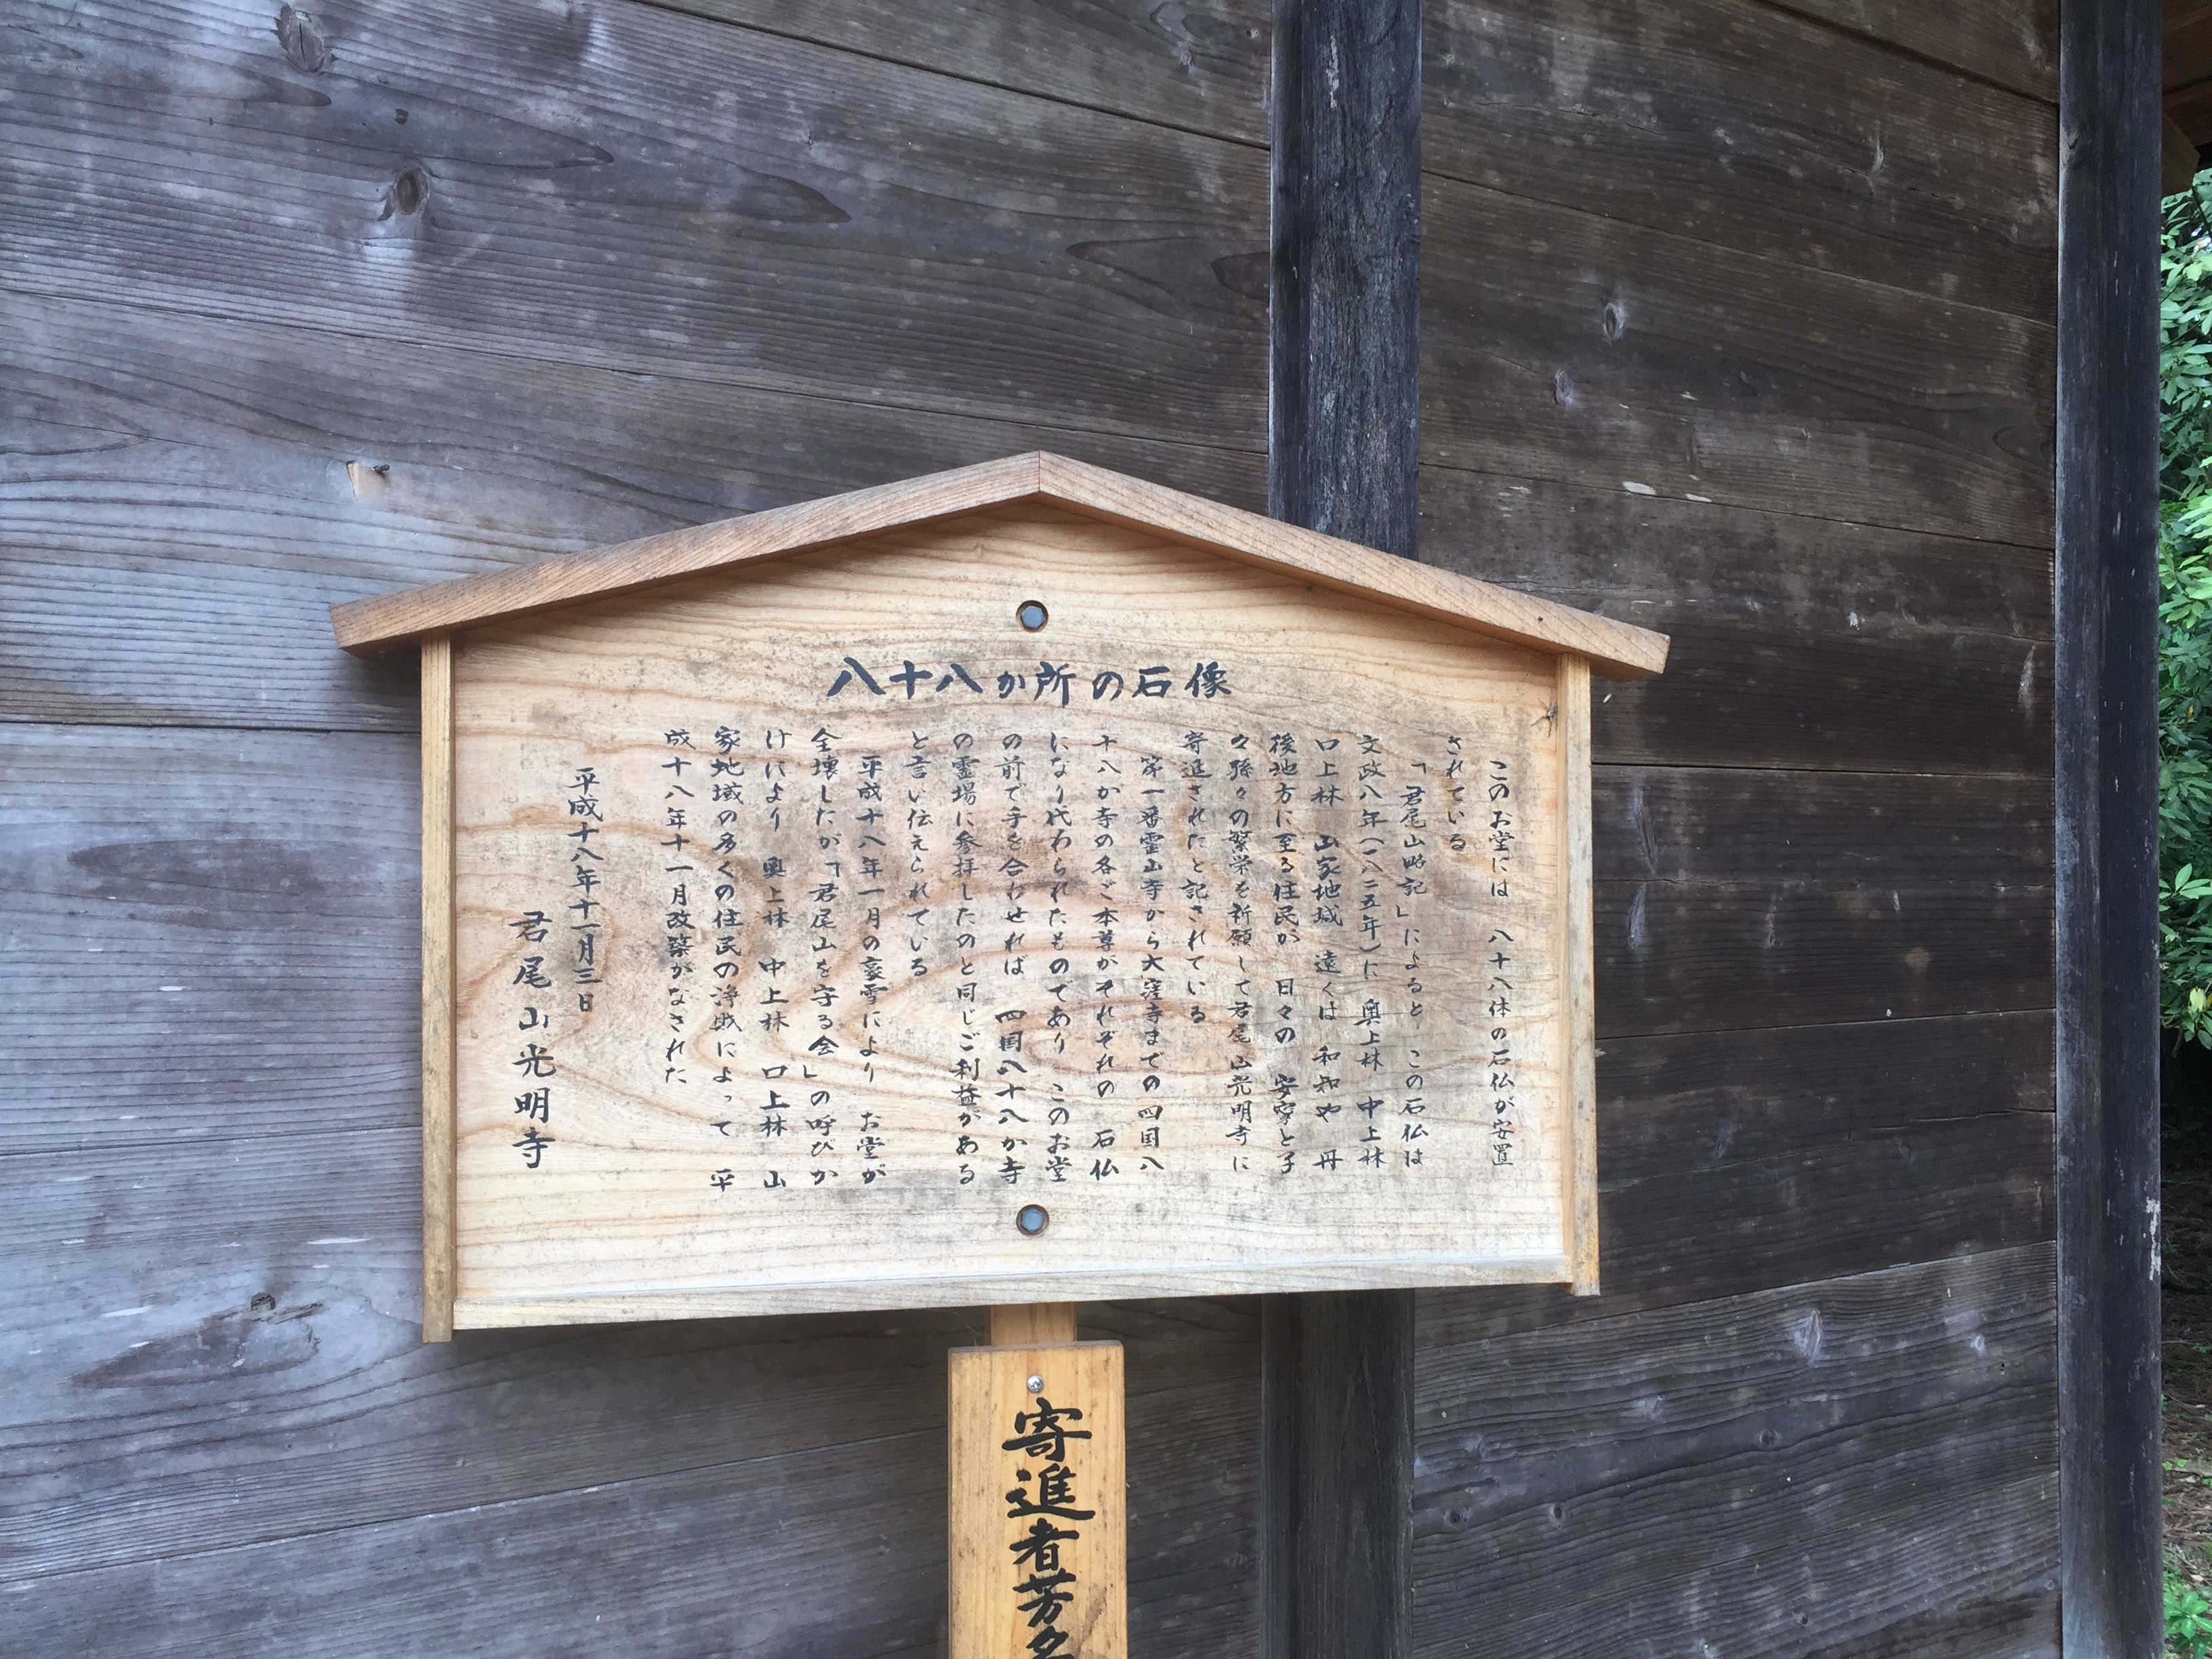 八十八か所の石像
このお堂には 八十八体の石仏が安置
されている
「君尾山略記」によると この石仏は
文政八年(一八二五年)に 奥上林 中上林
口上林 山家地域 遠くは 和知や 丹
後地方に至る住民が 日々の 安寧と子
々孫々の繁栄を祈願して君尾山光明寺に
寄進されたと記されている
第一番霊山寺から大窪寺までの四国八
十八か寺の各ご本尊がそれぞれの 石仏
になり代わられたものであり このお堂
の前で手を合わせれば 四国八十八か寺
の霊場に参拝したのと同じご利益がある
と言い伝えられている
平成十八年一月の豪雪により お堂が
全壊したが「君尾山を守る会」の呼びか
けにより 奥上林 中上林 口上林 山
家地域の多くの住民の浄財によって 平
成十八年十一月改築がなされた
平成十八年十一月三日
君尾山光明寺
寄進者芳名